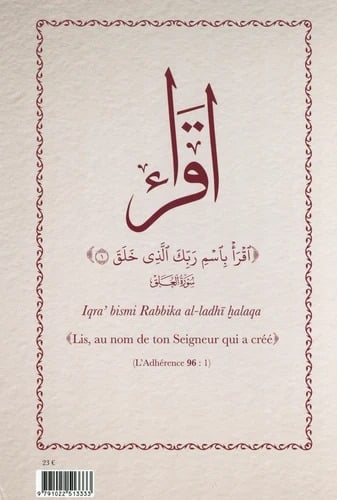 اقرأ
﴿ٱقۡرَأۡ بِٱسۡمِ رَبِّكَ ٱلَّذِي خَلَقَ ١﴾
سُورَةُ العَلَق
Iqra’ bismi Rabbika al-ladhī ḫalaqa
﴾Lis, au nom de ton Seigneur qui a créé﴿
(L’Adhérence 96 : 1)
23 €
9 791022 513333